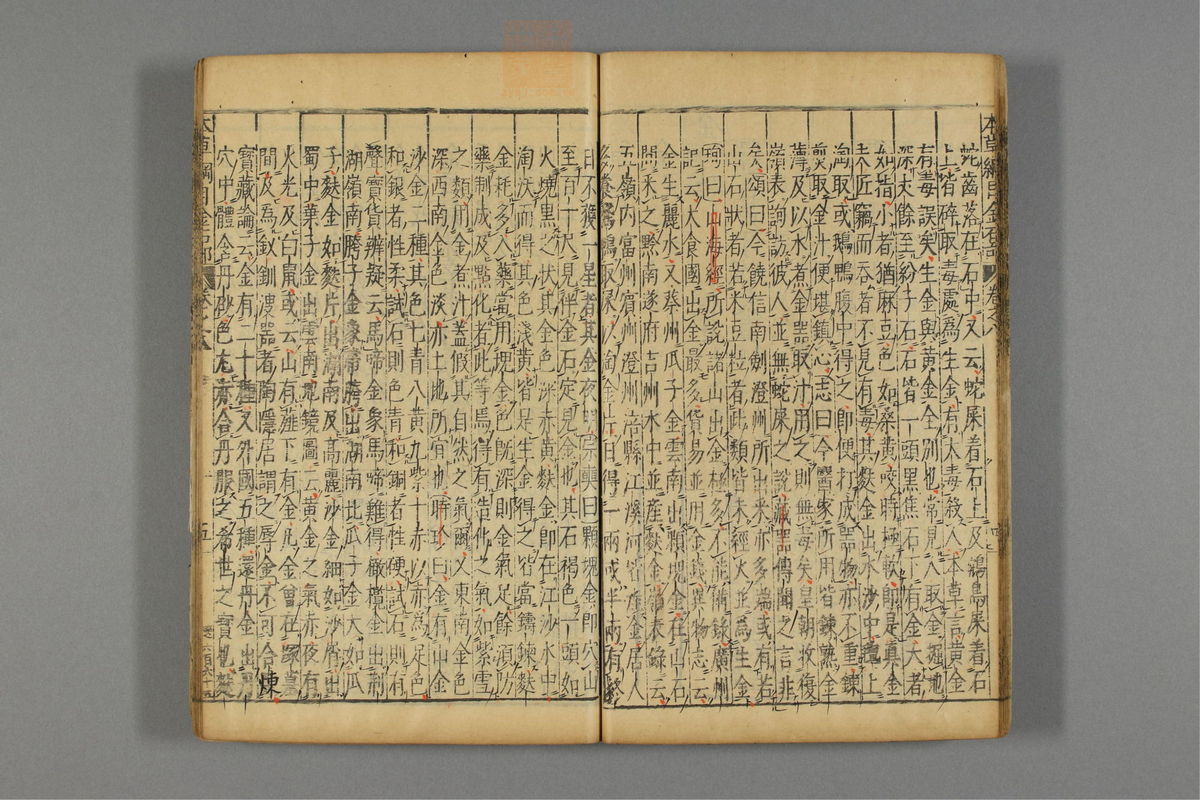 本草綱目金石部 卷之八
蛇齒落在石中又云蛇屎着石上及鴆鳥屎着石
上皆碎取毒處爲生金有大毒殺人本草言黃金
有毒誤矣生金與黃金全別也常見人取金掘地
深丈餘至紛子石石皆一頭黑焦石下有金大者
如指小者猶麻豆色如桑黃咬時極軟即是真金
夫匠竊而吞者不見有毒其麩金出水沙中氊上
淘取或鵝鴨腹中得之即便打成器物亦不重鍊
煎取金汁便堪鎮心志曰今醫家所用皆鍊熟金
薄及以水煮金器取汁用之則無毒矣皇朝收復
嶺表詢訪彼人並無蛇屎之說藏器傳聞之言非
矣頌曰今饒信南劍澄州所出采亦多端或有若
山石狀者若米豆粒者此類皆未經火並爲生金
珣曰山海經所說諸山出金極多不能備錄廣州
記云大食國出金最多貨易並用金錢異物志云
金生麗水又蔡州瓜子金雲南出顆塊金在山石
間采之黔南遂府吉州水中並産麩金嶺表錄云
五嶺內富州賓州澄州涪縣江溪河皆産金居人
多養鵝鴨取屎以淘金片日得一兩或半兩有終
日不獲一星者其金夜明宗奭曰顆塊金即穴山
至百十尺見伴金石定見金也其石褐色一頭如
火燒黑之狀其金色深赤黃麩金即在江沙水中
淘汰而得其色淺黃皆是生金得之皆當鑄鍊麩
金耗多入藥當用塊金色既深則金氣足餘須防
藥制成及點化者此等焉得有造化之氣如紫雪
之類用金煮汁蓋假其自然之氣爾又東南金色
深西南金色淡亦土地所宜也時珍曰金有山金
沙金二種其色七青八黃九紫十赤以赤爲足色
和銀者性柔試石則色青和銅者性硬試石則有
聲寶貨辨疑云馬蹄金象馬蹄難得橄欖金出荊
湖嶺南胯子金象帶胯出湖南北瓜子金大如瓜
子麩金如麩片出湖南及高麗沙金細如沙屑出
蜀中葉子金出雲南地鏡圖云黃金之氣赤夜有
火光及白鼠或云山有薤下有金凡金曾在冢墓
間及爲釵釧溲器者陶隱居謂之辱金不可合煉
寶藏論云金有二十種又外國五種還丹金出丹
穴中體含丹砂色尤赤合丹服之希世之寶也麩
本草綱目金石部 卷之八 五